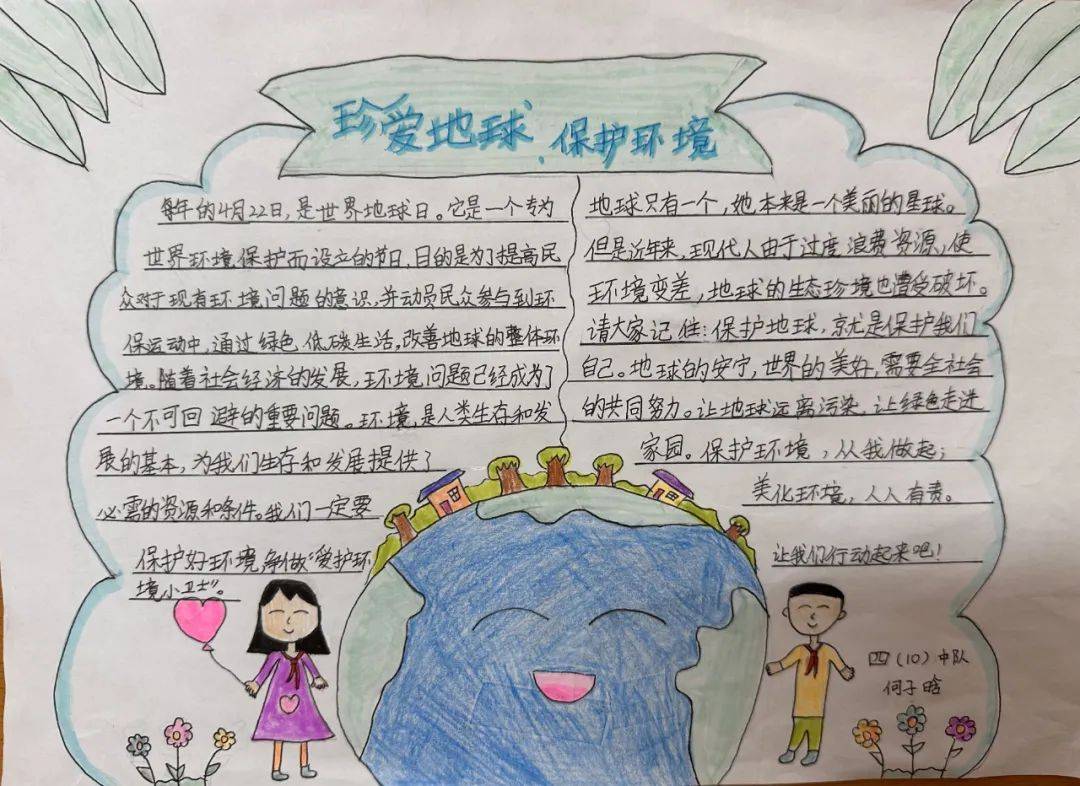 珍爱地球、保护环境
每年的4月22日,是世界地球日。它是一个专为
世界环境保护而设立的节日,目的是为了提高民
众对于现有环境问题的意识,并动员民众参与到环
保运动中,通过绿色低碳生活,改善地球的整体环
境。随着社会经济的发展,环境问题已经成为了
一个不可回避的重要问题。环境,是人类生存和发
展的基本,为我们生存和发展提供了
必需的资源和条件。我们一定要
保护好环境,争做“爱护环
境小卫士”。
地球只有一个,她本来是一个美丽的星球。
但是近年来,现代人由于过度浪费资源,使
环境变差,地球的生态环境也遭受破坏。
请大家记住:保护地球,就是保护我们
自己。地球的安宁,世界的美好,需要全社会
的共同努力。让地球远离污染,让绿色走进
家园。保护环境,从我做起;
美化环境,人人有责。
让我们行动起来吧!
四(10)中队
何子晗